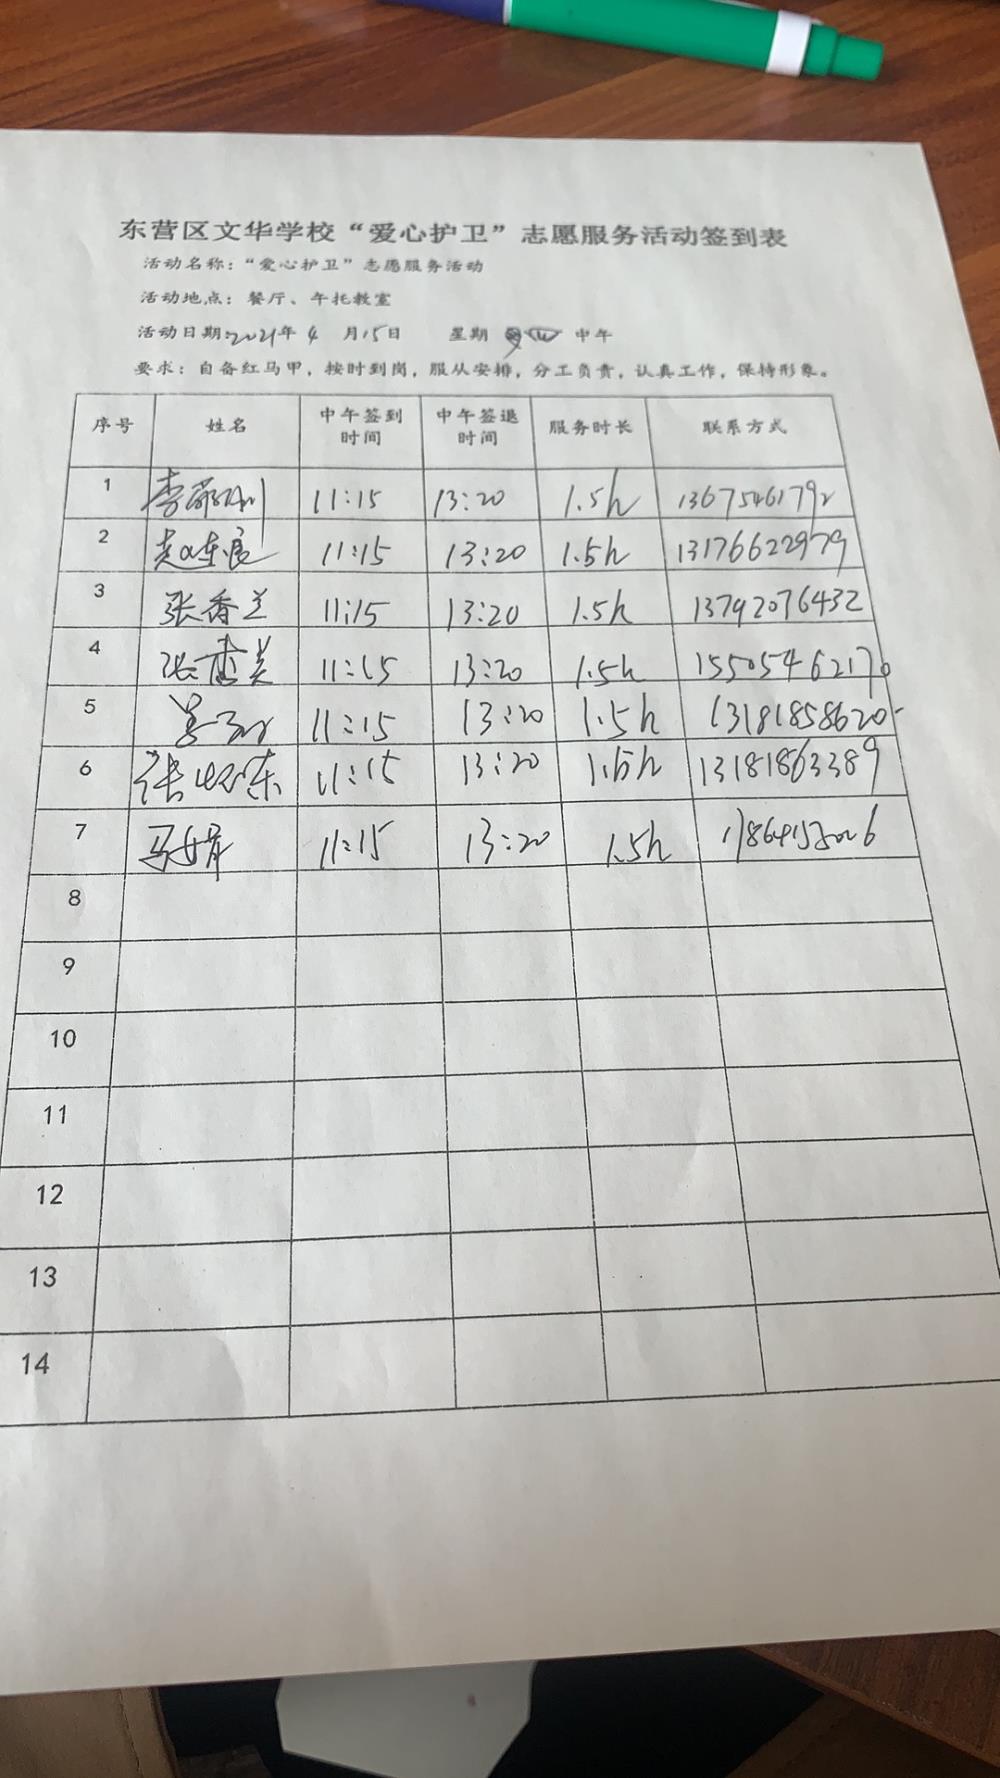 东营区文华学校“爱心护卫”志愿服务活动签到表
活动名称：“爱心护卫”志愿服务活动
活动地点：餐厅、午托教室
活动日期：2021年 4 月15日 星期 四 中午
要求：自备红马甲，按时到岗，服从安排，分工负责，认真工作，保持形象。
序号 姓名 中午签到时间 中午签退时间 服务时长 联系方式
1 李 11:15 13:20 1.5h 13675461792
2 11:15 13:20 1.5h 13176622979
3 张香兰 11:15 13:20 1.5h 13792076432
4 张 11:15 13:20 1.5h 15505462170
5 11:15 13:20 1.5h 13181858620
6 张 11:15 13:20 1.5h 13181863389
7 马 11:15 13:20 1.5h
8
9
10
11
12
13
14